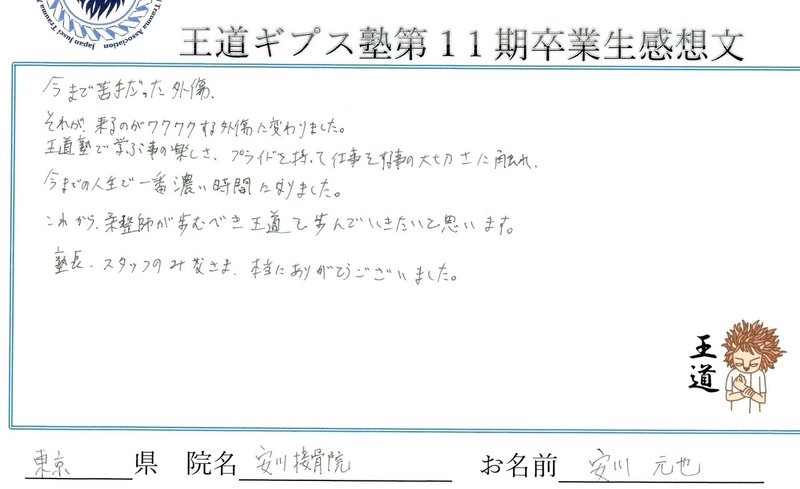 Trauma Association Japan Judo Trauma
王道ギプス塾第11期卒業生感想文
今まで苦手だった外傷、
それが、来るのがワクワクする外傷に変わりました。
王道塾で学ぶ事の楽しさ、プライドを持って仕事をする事の大切さに触れ、
今までの人生で一番濃い時間になりました。
これから、柔整師が歩むべき王道を歩んでいきたいと思います。
塾長、スタッフのみなさま、本当にありがとうございました。
王道
東京県 院名 安川接骨院 お名前 安川 元也